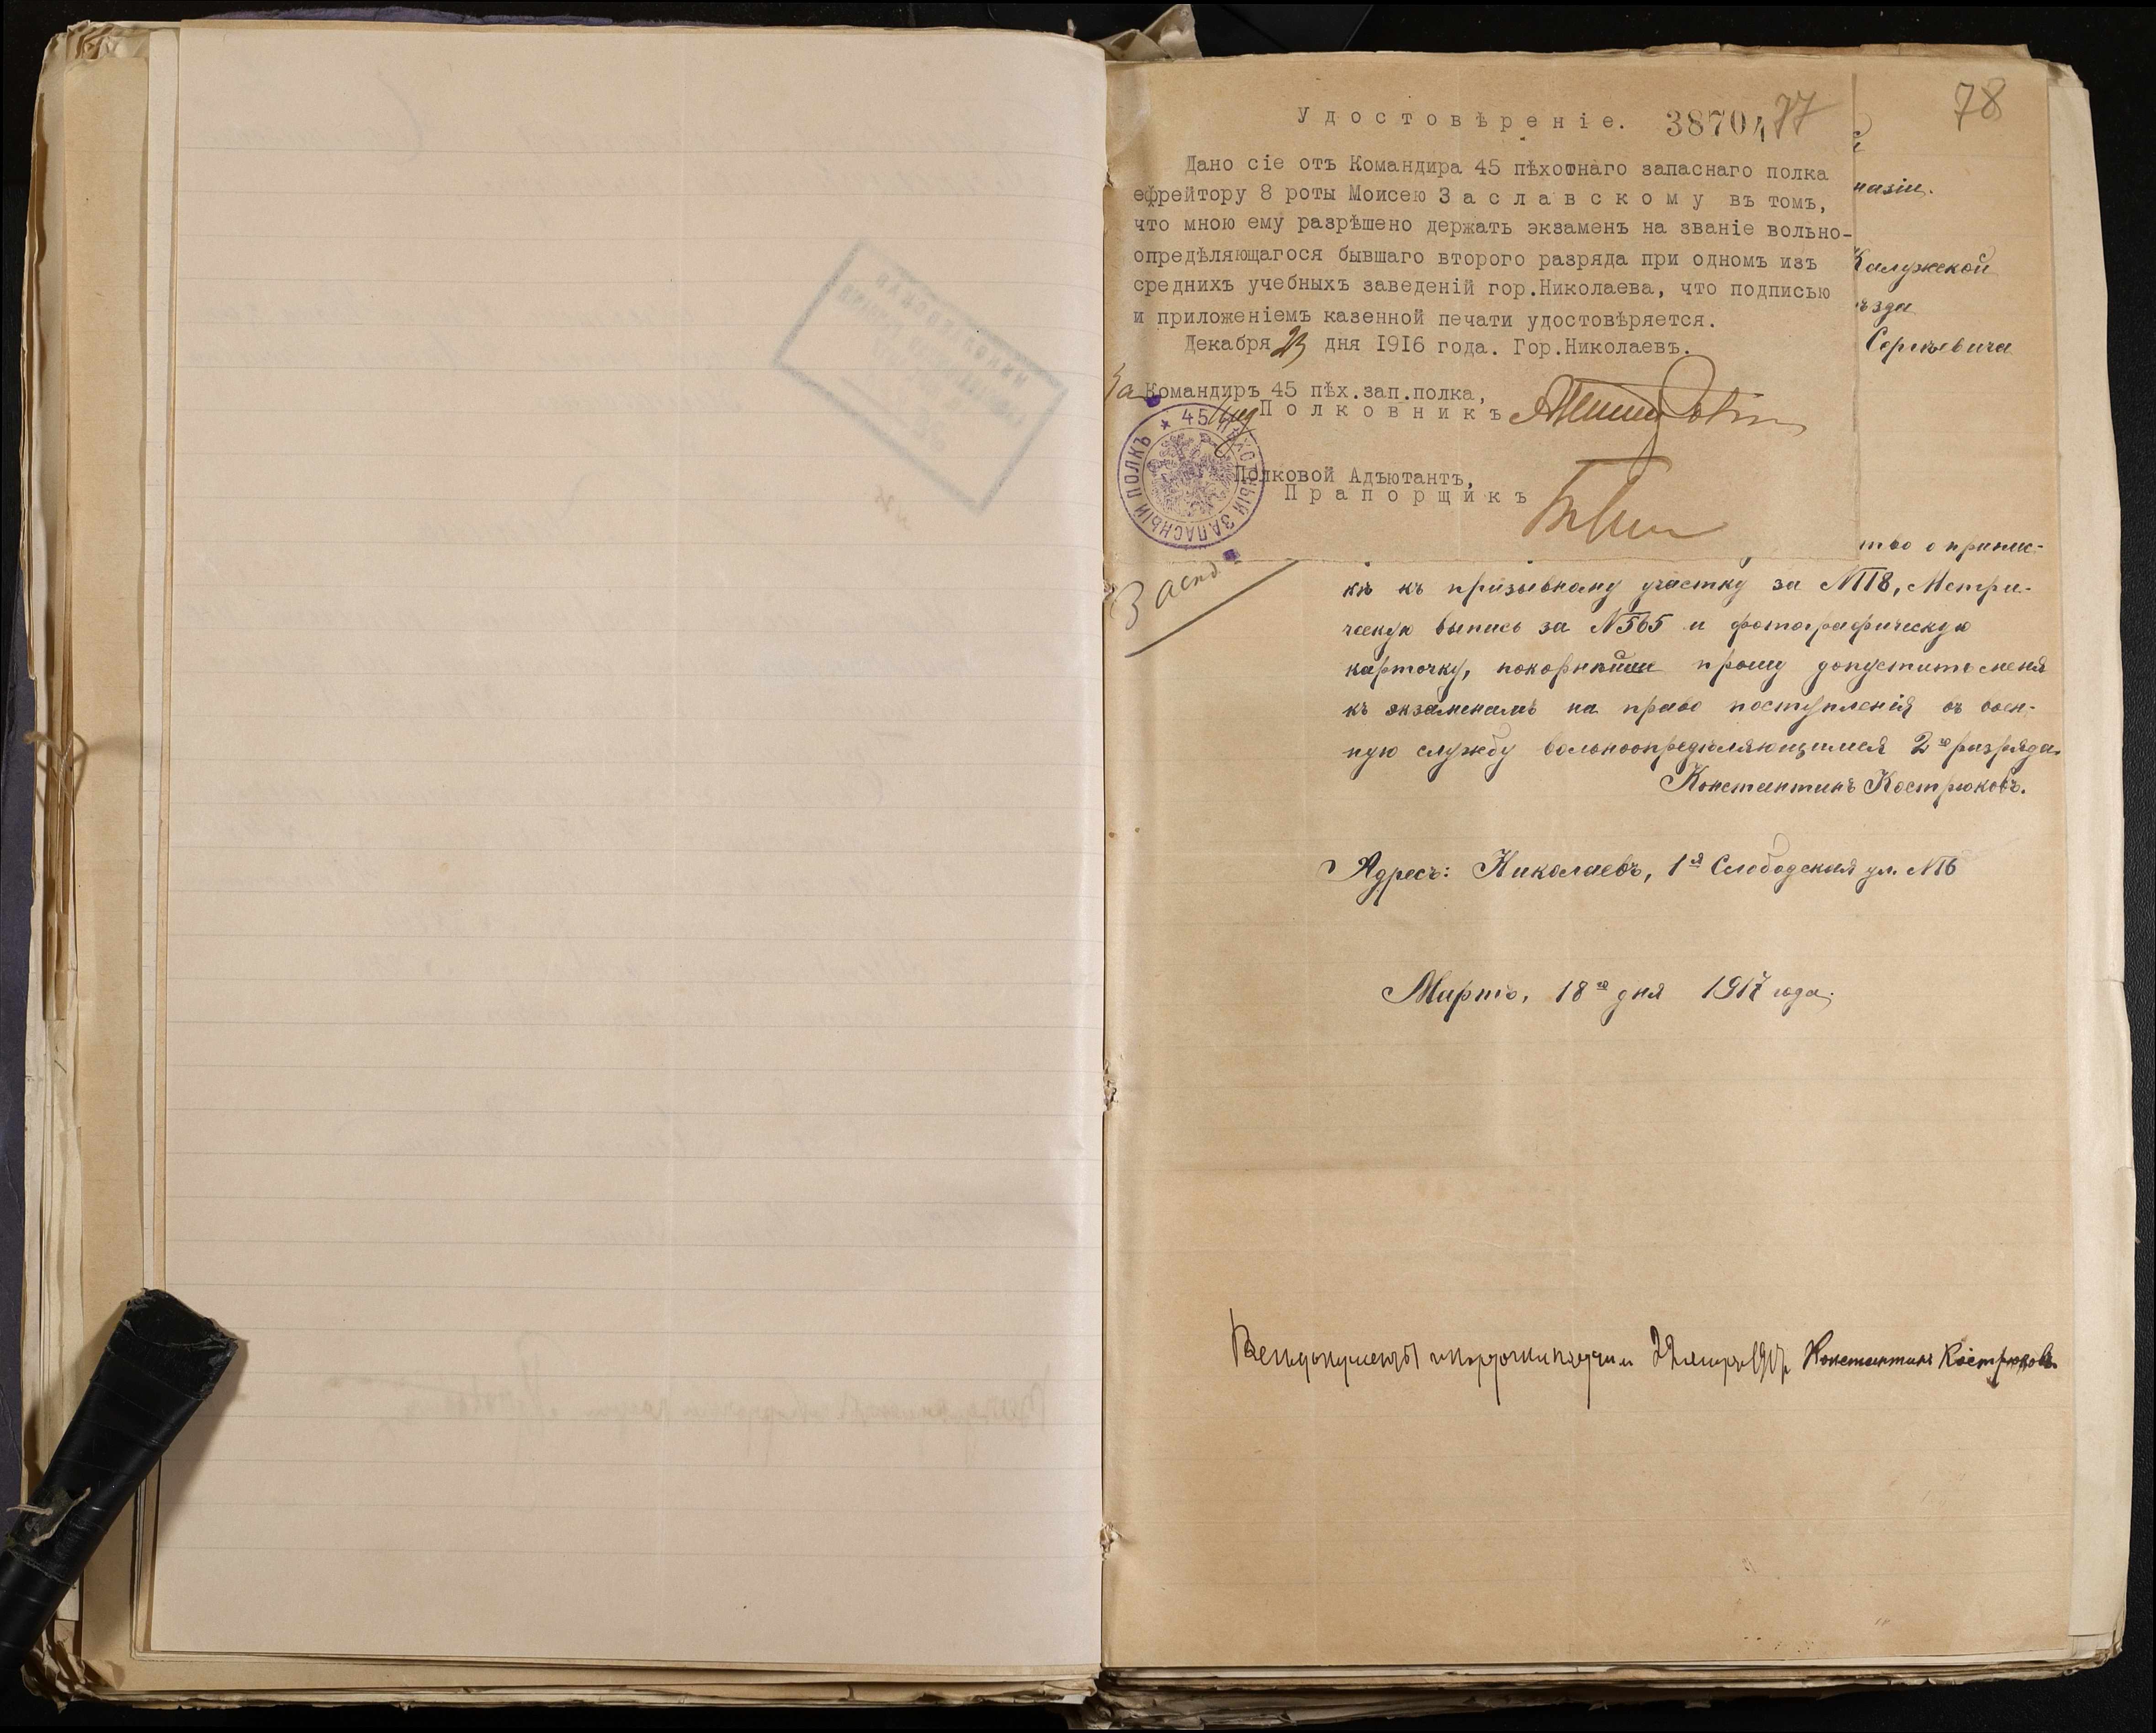 78
Удостовѣреніе. 38704 77
Дано сіе отъ Командира 45 пѣхотнаго запаснаго полка
ефрейтору 8 роты Моисею Заславскому въ томъ,
что мною ему разрѣшено держать экзаменъ на званіе вольно-
опредѣляющагося бывшаго второго разряда при одномъ изъ
среднихъ учебныхъ заведеній гор.Николаева, что подписью
и приложеніемъ казенной печати удостовѣряется.
Декабря 23 дня 1916 года. Гор.Николаевъ.
За Командиръ 45 пѣх.зап.полка,
Полковникъ
Полковой Адъютантъ,
Прапорщикъ
* 45 ПѢХОТНЫЙ ЗАПАСНЫЙ ПОЛКЪ
назіи.
Калужской
ѣзда
Сергѣевича
тво о припис-
кѣ къ призывному участку за №118, Метри-
ческую выпись за №565 и фотографическую
карточку, покорнѣйше прошу допустить меня
къ экзаменамъ на право поступленія въ воен-
ную службу вольноопредѣляющимся 2го разряда.
Константинъ Кострюковъ.
Адресъ: Николаевъ, 1я Слободская ул. №16
Мартъ, 18го дня 1917 года.
Всѣ документы и карточки получилъ 29 марта 1917 г. Константинъ Кострюковъ